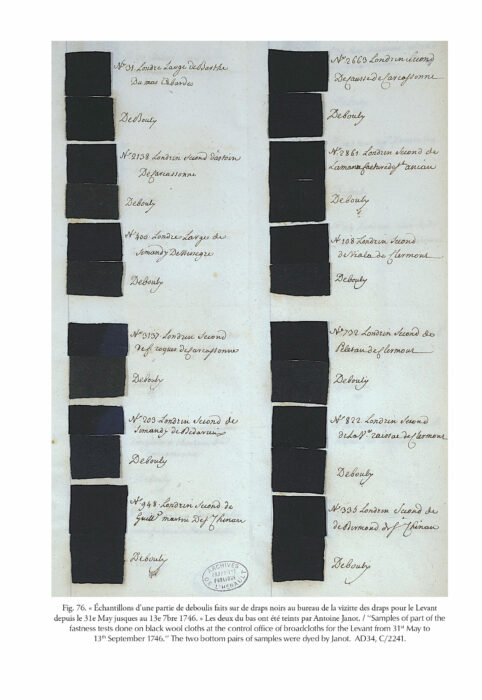 N.° 31 Londre Large de Barthe
Du mas Cabardes
Debouly
N.° 2138 Londrin Second d'astoin
De Carcassonne
Debouly
N.° 400 Londre Larges de
Simandy De
Debouly
N.° 3137 Londrin Second
de Croques de Carcassonne
Debouly
N.° 203 Londrin Second de
Simandy de Bedarieux
Debouly
N.° 948 Londrin Second de
Guill.e martin De S.t Chinian
Debouly
N.° 2663 Londrin Second
De sausse de Carcassonne
Debouly
N.° 2861 Londrin Second de
La manufacture du S.r
Debouly
N.° 108 Londrin Second
de Viala de Clermont
Debouly
N.° 732 Londrin Second de
de Clermont
Debouly
N.° 822 Londrin Second
de La V.e de Clermont
Debouly
N.° 335 Londrin Second de
de Bermond de S.t Chinian
Debouly
ARCHIVES
DE L'HERAULT
Fig. 76. « Échantillons d'une partie de deboulis faits sur de draps noirs au bureau de la vizitte des draps pour le Levant
depuis le 31e May jusques au 13e 7bre 1746. » Les deux du bas ont été teints par Antoine Janot. / "Samples of part of the
fastness tests done on black wool cloths at the control office of broadcloths for the Levant from 31st May to
13th September 1746." The two bottom pairs of samples were dyed by Janot. AD34, C/2241.